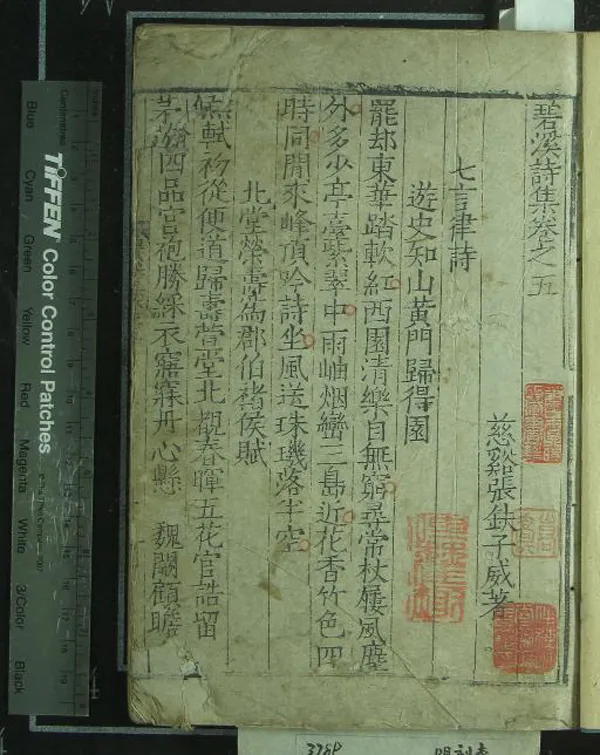 碧溪詩集卷之五
慈谿張鈇子威著
七言律詩
遊史知山黃門歸得園
罷却東華踏軟紅西園清樂自無窮尋常杖屨風塵
外多少亭臺紫翠中雨岫烟巒三島近花香竹色四
時同閒來峰頂吟詩坐風送珠璣落半空
北堂榮壽為郡伯褚侯賦
熊軾初從便道歸壽萱堂北觀春暉五花官誥留
四品宮袍勝綵衣寤寐丹心懸 魏闕顧瞻
TIFFEN Color Control Patches
Centimetres
Blue
Cyan
Green
Yellow
Red
Magenta
White
3/Color
Black
378P
明刻本